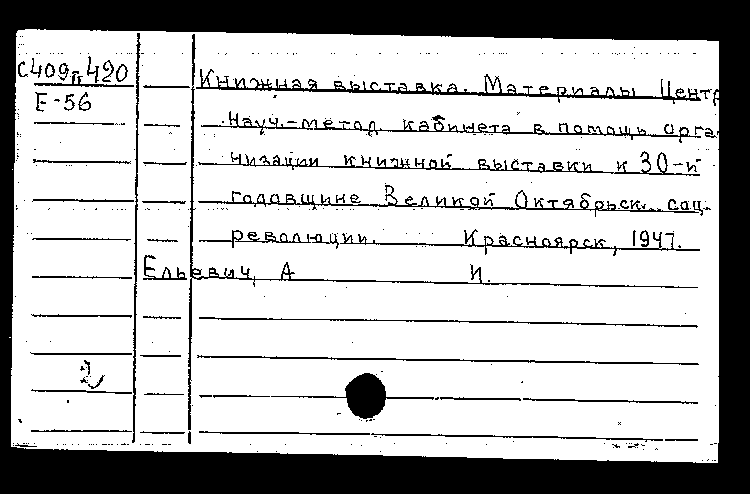 С409п420
Е-56
Книжная выставка. Материалы Центр
Науч.-метод. кабинета в помощь орга
низации книжной выставки к 30-й
годовщине Великой Октябрьск. соц.
революции. Красноярск, 1947.
Ельевич, А И.
2